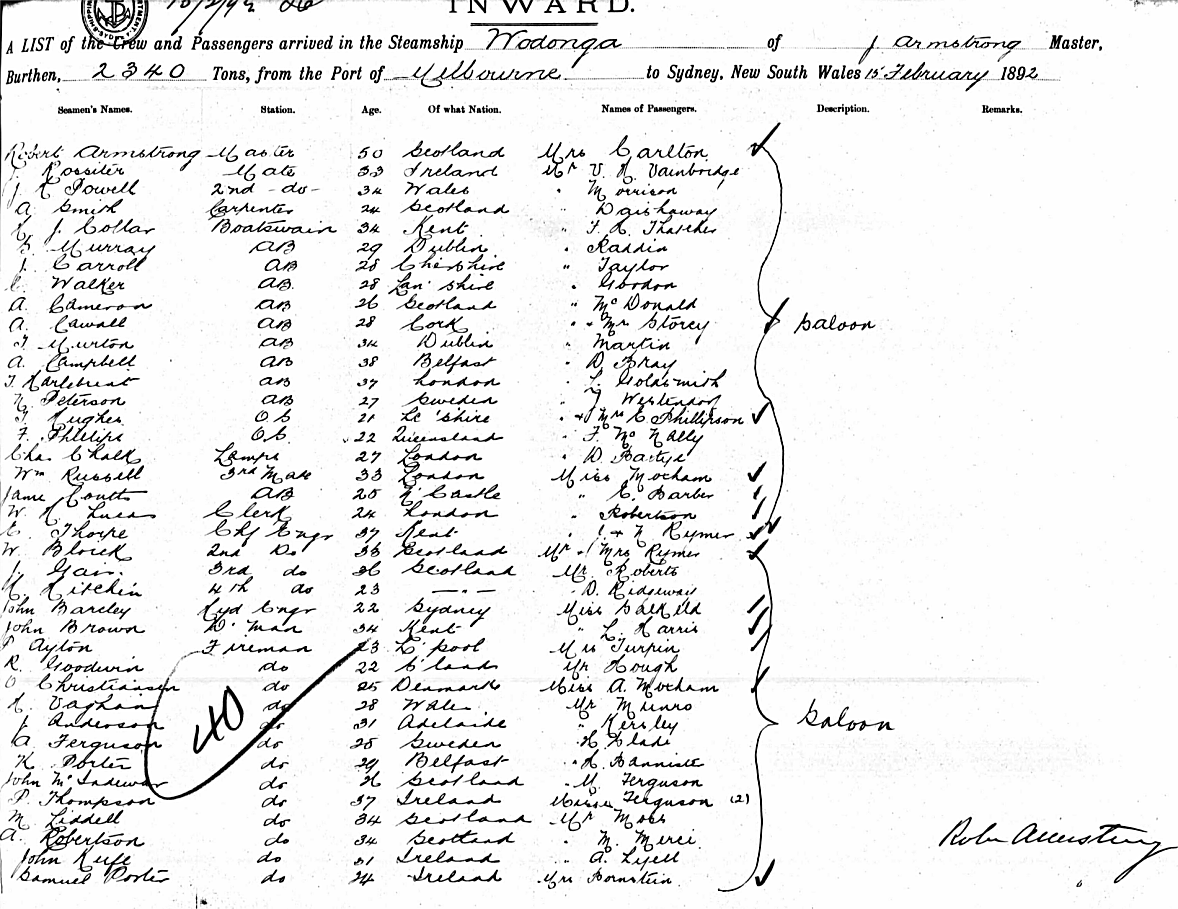 INWARD.
A LIST of the Crew and Passengers arrived in the Steamship Wodonga of J Armstrong Master,
Burthen, 2340 Tons, from the Port of Melbourne to Sydney, New South Wales 15 February 1892
Seamen's Names. Station. Age. Of what Nation. Names of Passengers. Description. Remarks.
Robert Armstrong Master 50 Scotland Mrs Carlton
Rossiter Mate 33 Ireland Mr V. H. Vainbridge
J H Powell 2nd -do- 34 Wales " Morrison
A. Smith Carpenter 24 Scotland "
J. Collar Boatswain 34 Kent " F. H. Thatcher
Murray AB 29 Dublin "
J. Carroll AB 28 Cheshire " Taylor
C. Walker AB 28 Lan'shire " Gordon
A. Cameron AB 26 Scotland " McDonald
A. Cawall AB 28 Cork " + Mrs Storey Saloon
Murton AB 34 Dublin " Martin
A. Campbell AB 38 Belfast " D. Bray
T. AB 37 London " L. Goldsmith
N. Peterson AB 27 Sweden " J
T. Hughes O.S 21 Le'shire " + Mrs C. Phillipson
F. Phelips O.S. 22 Queensland " F. McNally
Chas Chalk Lamps 27 London " D.
Wm Russell 3rd Mate 33 London Miss Mocham
Jame Coutts AB 25 N'Castle " E. Barber
W. H. Lucas Clerk 24 London " Robertson
E. Thorpe Chf Engr 37 Kent " J + N Rymer
W. Block 2nd Do 36 Scotland Mr + Mrs Rymer
J. Gair 3rd do 26 Scotland Mr. Roberts
H. Kitchin 4th do 23 -"- " D. Ridgeway
John Barcley Hyd Engr 22 Sydney Miss Salkild
John Brown D'Man 34 Kent " L. Harris
P. Ayton Fireman 23 L'pool Mrs Turpin
R. Goodwin do 22 Mr Hough
O Christiansen do 25 Denmark Miss A. Mocham
H. Vaghan do 28 Wales Mr Munro
J. Anderson do 31 Adelaide " Kersley Saloon
40
A. Ferguson do 25 Sweden " H Slade
K. Porter do 29 Belfast " H. Bannister
John McIndewar do 26 Scotland " M. Ferguson
P. Thompson do 37 Ireland Misses Ferguson (2)
M. Liddell do 34 Scotland Mr Moss
A. Robertson do 34 Scotland " M. Merci
John Keife do 31 Ireland " A. Lyell
Samuel Porter do 24 Ireland Mrs Bornstein